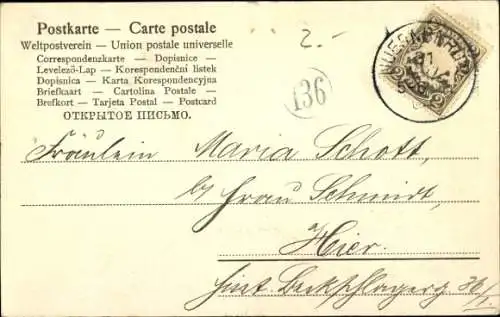 Postkarte — Carte postale
Weltpostverein — Union postale universelle
Correspondenzkarte — Dopisnice —
Levelező-Lap — Korespondenční listek
Dopisnica — Karta Korespondencyjna
Briefkaart — Cartolina Postale —
Brefkort — Tarjeta Postal — Postcard
ОТКРЫТОЕ ПИСЬМО.
2.-
136
Fräulein Maria Schott,
b/ Frau Schmidt,
Hier.
36/1.